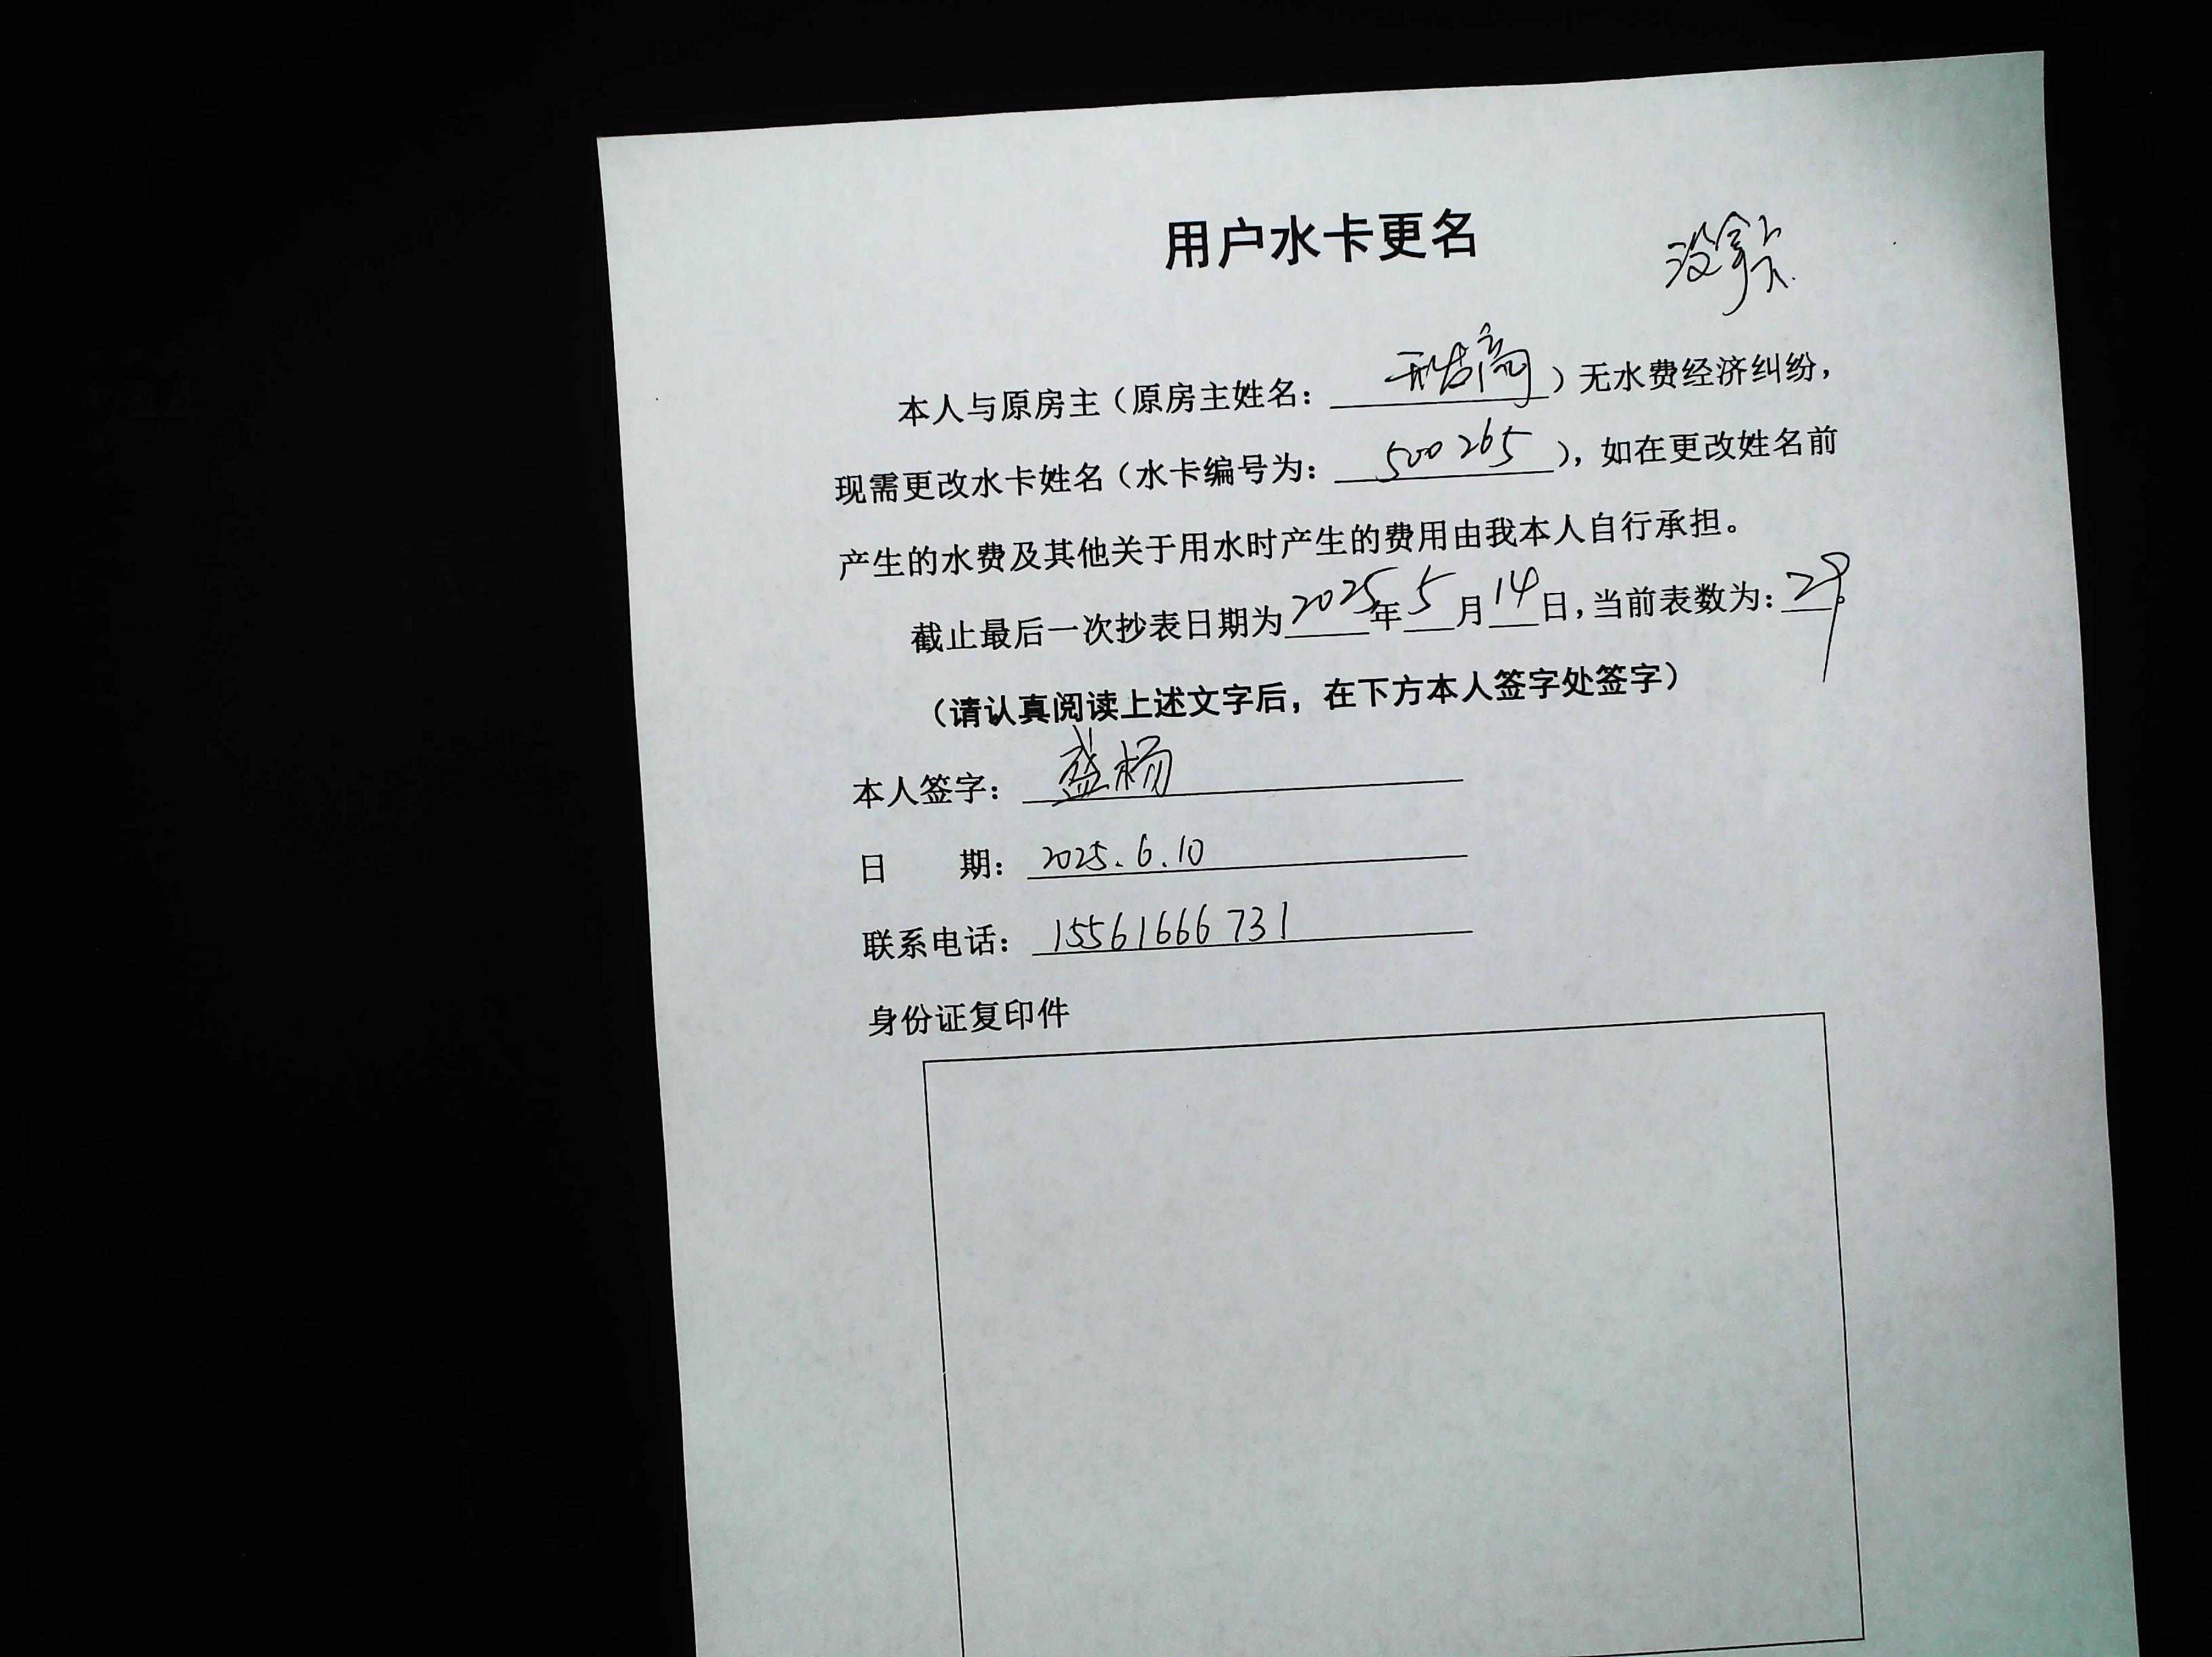 用户水卡更名
没拿卡
本人与原房主（原房主姓名：）无水费经济纠纷，
现需更改水卡姓名（水卡编号为：500265），如在更改姓名前
产生的水费及其他关于用水时产生的费用由我本人自行承担。
截止最后一次抄表日期为2025年5月14日，当前表数为：29。
（请认真阅读上述文字后，在下方本人签字处签字）
本人签字：盛杨
日 期：2025.6.10
联系电话：15561666731
身份证复印件